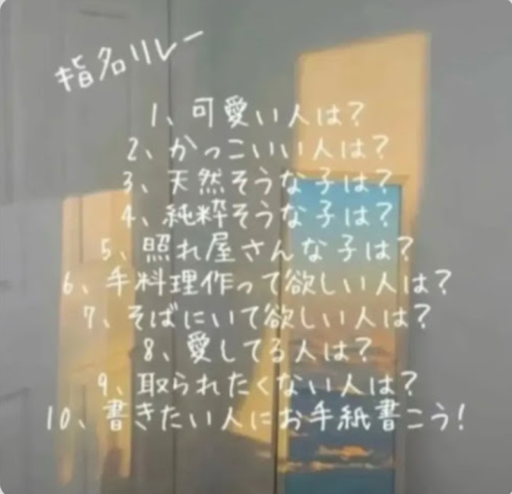 指名リレー
1、可愛い人は?
2、かっこいい人は?
3、天然そうな子は?
4、純粋そうな子は?
5、照れ屋さんな子は?
6、手料理作って欲しい人は?
7、そばにいて欲しい人は?
8、愛してる人は?
9、取られたくない人は?
10、書きたい人にお手紙書こう!